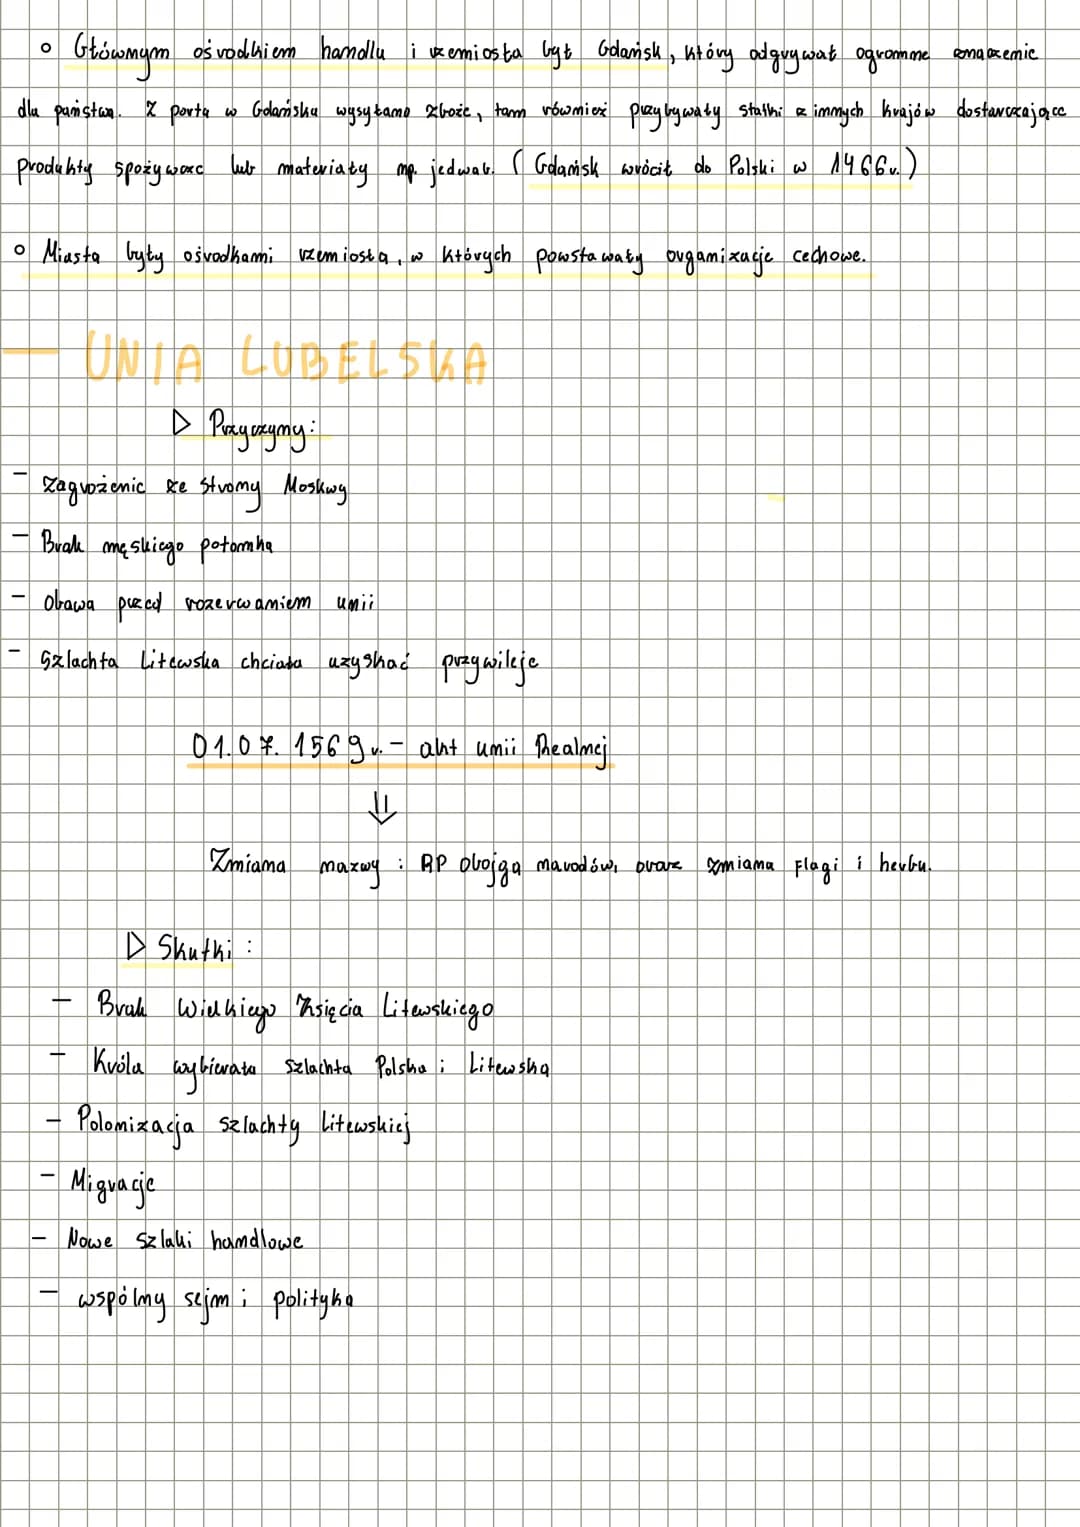 o Głównym ośrodkiem handlu i rzemiosła był Gdańsk, który odgrywał ogromne znaczenie
dla państwa. Z portu w Gdańsku wysyłano zboże, tam również przybywały statki z innych krajów dostarczające
produkty spożywcze lub materiały np. jedwab. (Gdańsk wrócił do Polski w 1466r.)
o Miasta były ośrodkami rzemiosła, w których powstawały organizacje cechowe.
— UNIA LUBELSKA
▷ Przyczyny:
- Zagrożenie ze strony Moskwy
- Brak męskiego potomka
- Obawa przed rozerwaniem unii
- Szlachta Litewska chciała uzyskać przywileje
01.07.1569r. - akt unii Realnej
⇓
Zmiana nazwy : RP obojga narodów, oraz zmiana flagi i herbu.
▷ Skutki :
- Brak Wielkiego Księcia Litewskiego
- Króla wybierała szlachta Polska i Litewska
- Polonizacja szlachty Litewskiej
- Migracje
- Nowe szlaki handlowe
- wspólny sejm i polityka